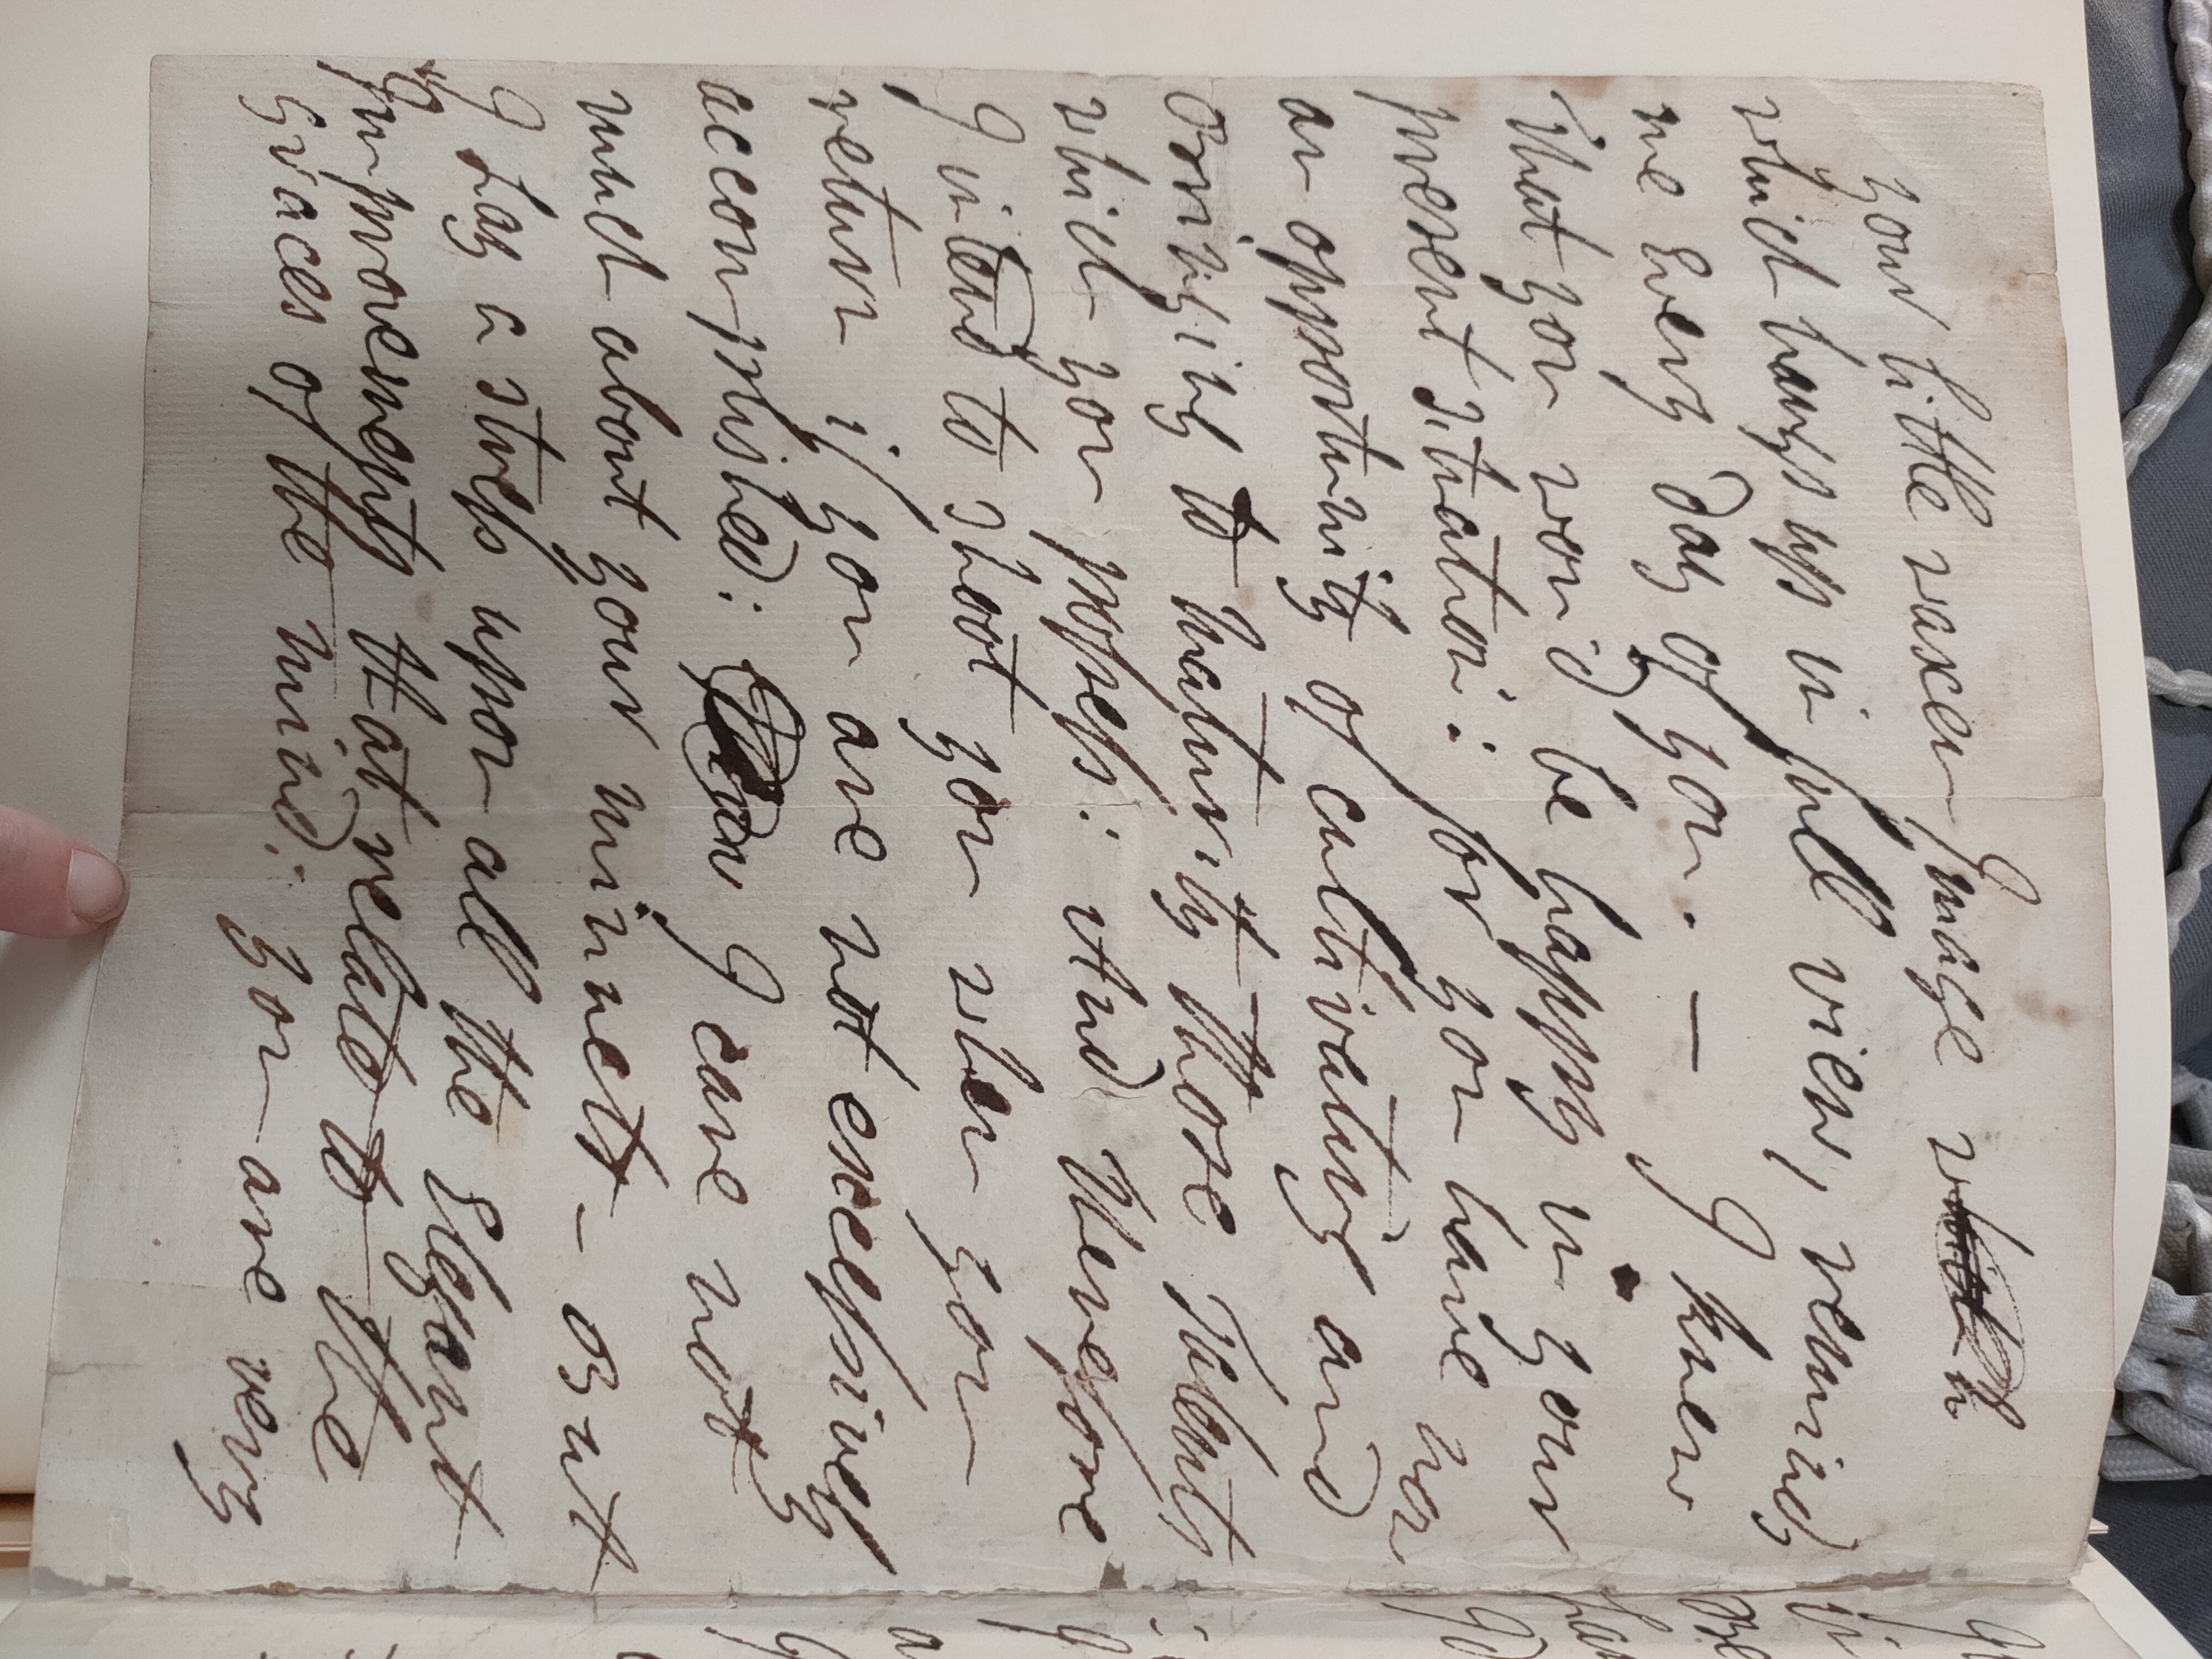 your little waxen Image w
which hangs up in full view, reminds
me every day of you. — I knew
that you wou'd be happy in your
present situation: for you have now
an opportunity of cultivating and
bringing to maturity those Talents
which you possess: And therefore
I intend to shoot you when you
return if you are not excessively
accomplished: I care not
much about your minuets — but
I lay a stress upon all the Elegant
Improvements that relate to the
Graces of the mind: you are very